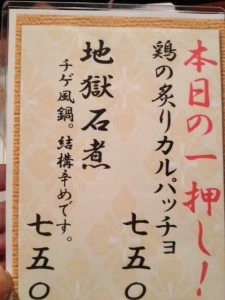 本日の一押し！
鶏の炙りカルパッチョ
七五〇
地獄石煮
チゲ風鍋。結構辛めです。
七五〇